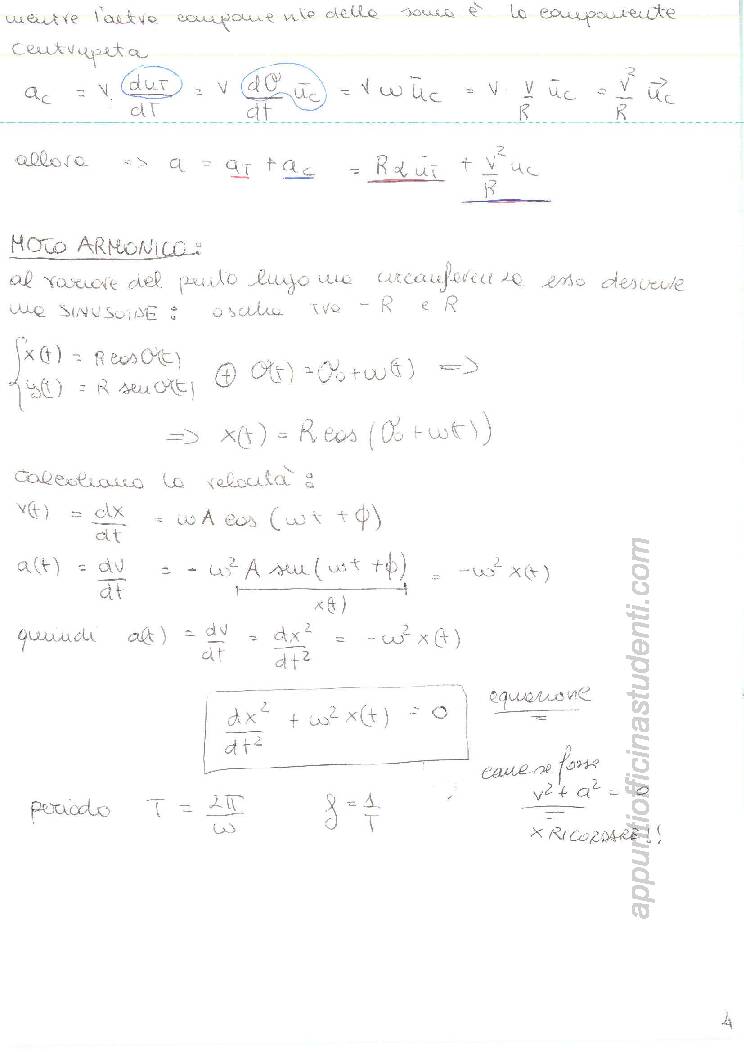 mentre l'altra componente della somma è la componente
centripeta
a_c = v · du_T/dT = v dθ/dt ū_c = v ω ū_c = v · v/R ū_c = v²/R u⃗_c
allora => a = a_T + a_c = R α ū_T + v²/R u_c
MOTO ARMONICO:
al variare del punto lungo una circonferenza esso descrive
una SINUSOIDE: oscilla tra - R e R
{ x(t) = R cos θ(t)
{ y(t) = R sen θ(t) ⊕ θ(t) = θ₀ + ω(t) =>
=> x(t) = R cos (θ₀ + ωt)
calcoliamo la velocità:
v(t) = dx/dt = ω A cos (ωt + ϕ)
a(t) = dv/dt = - ω² A sen (ωt + ϕ) = -ω² x(t)
x(t)
quindi a(t) = dv/dt = dx²/dt² = -ω² x(t)
dx²/dt² + ω² x(t) = 0
equazione
come se fosse
v² + a² = 0
x RICORDARE!!
periodo T = 2π/ω f = 1/T
appuntiofficinastudenti.com
4